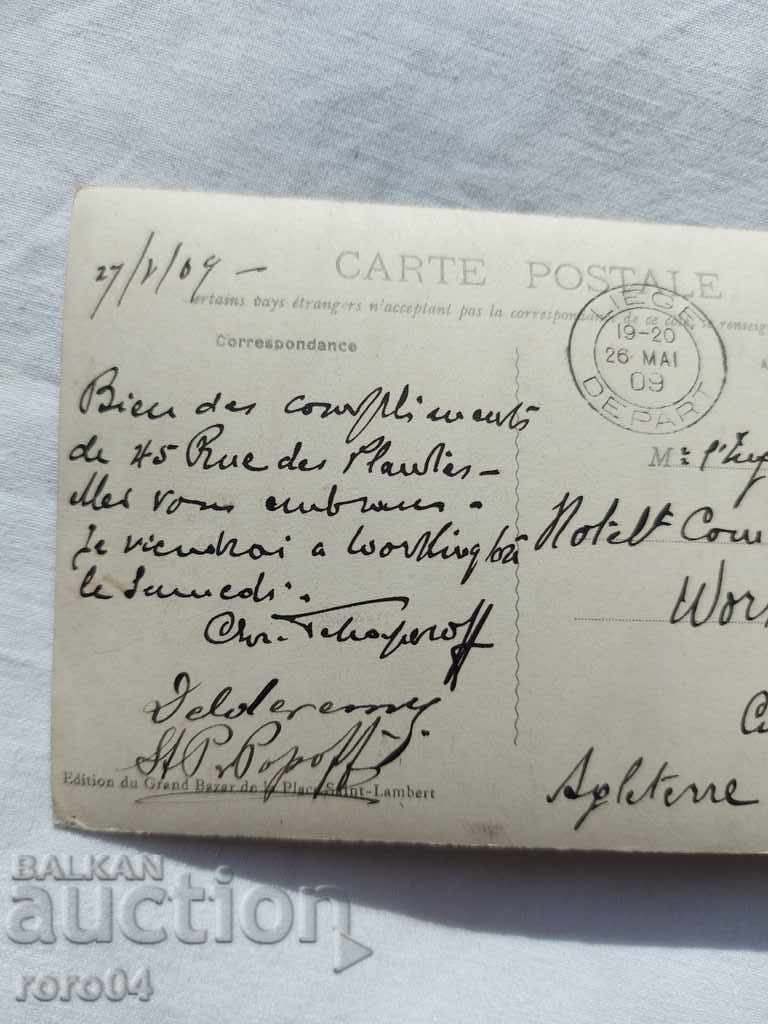 27/V/09 –
CARTE POSTALE
Certains pays étrangers n'acceptant pas la correspondance de ce côté, se renseign
Correspondance
LIEGE
19-20
26 MAI
09
DEPART
Bien des compliments
de 45 Rue des Plantes –
vous
Je viendrai a Worthing
le Samedi.
Delderenny
St P. Popoff
Edition du Grand Bazar de la Place Saint-Lambert
Mr
Hotel Com
Wor
Agleterre
BALKAN
auction
roro04